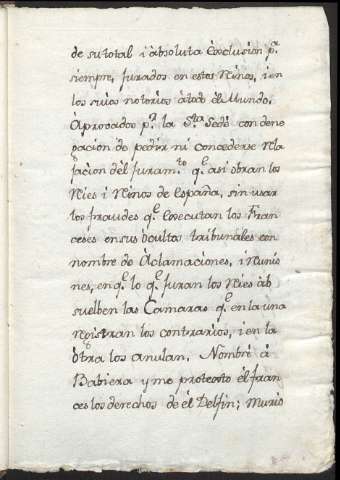 de su total i absoluta Exclusion pr.
siempre, jurados en estos Reinos, i en
los suios notorios à todo el Mundo,
Aprovados pr. la Sta. Sede con dene
gacion de pedir ni concederse Rela
jacion dèl juramto. qe. asi obran los
Reies i Reinos de España, sin usar
los fraudes qe. executan los Fran
ceses en sus òcultas tribunales con
nombre de Aclamaciones, i Reunio
nes, en qe. lo qe. juran los Reies àb
suelben las Camaras qe. en la una
registran los contrarios, i en la
òtra los anulan. Nombrè à
Babiera y me protestò èl fran
ces los derechos de èl Delfin; Murio